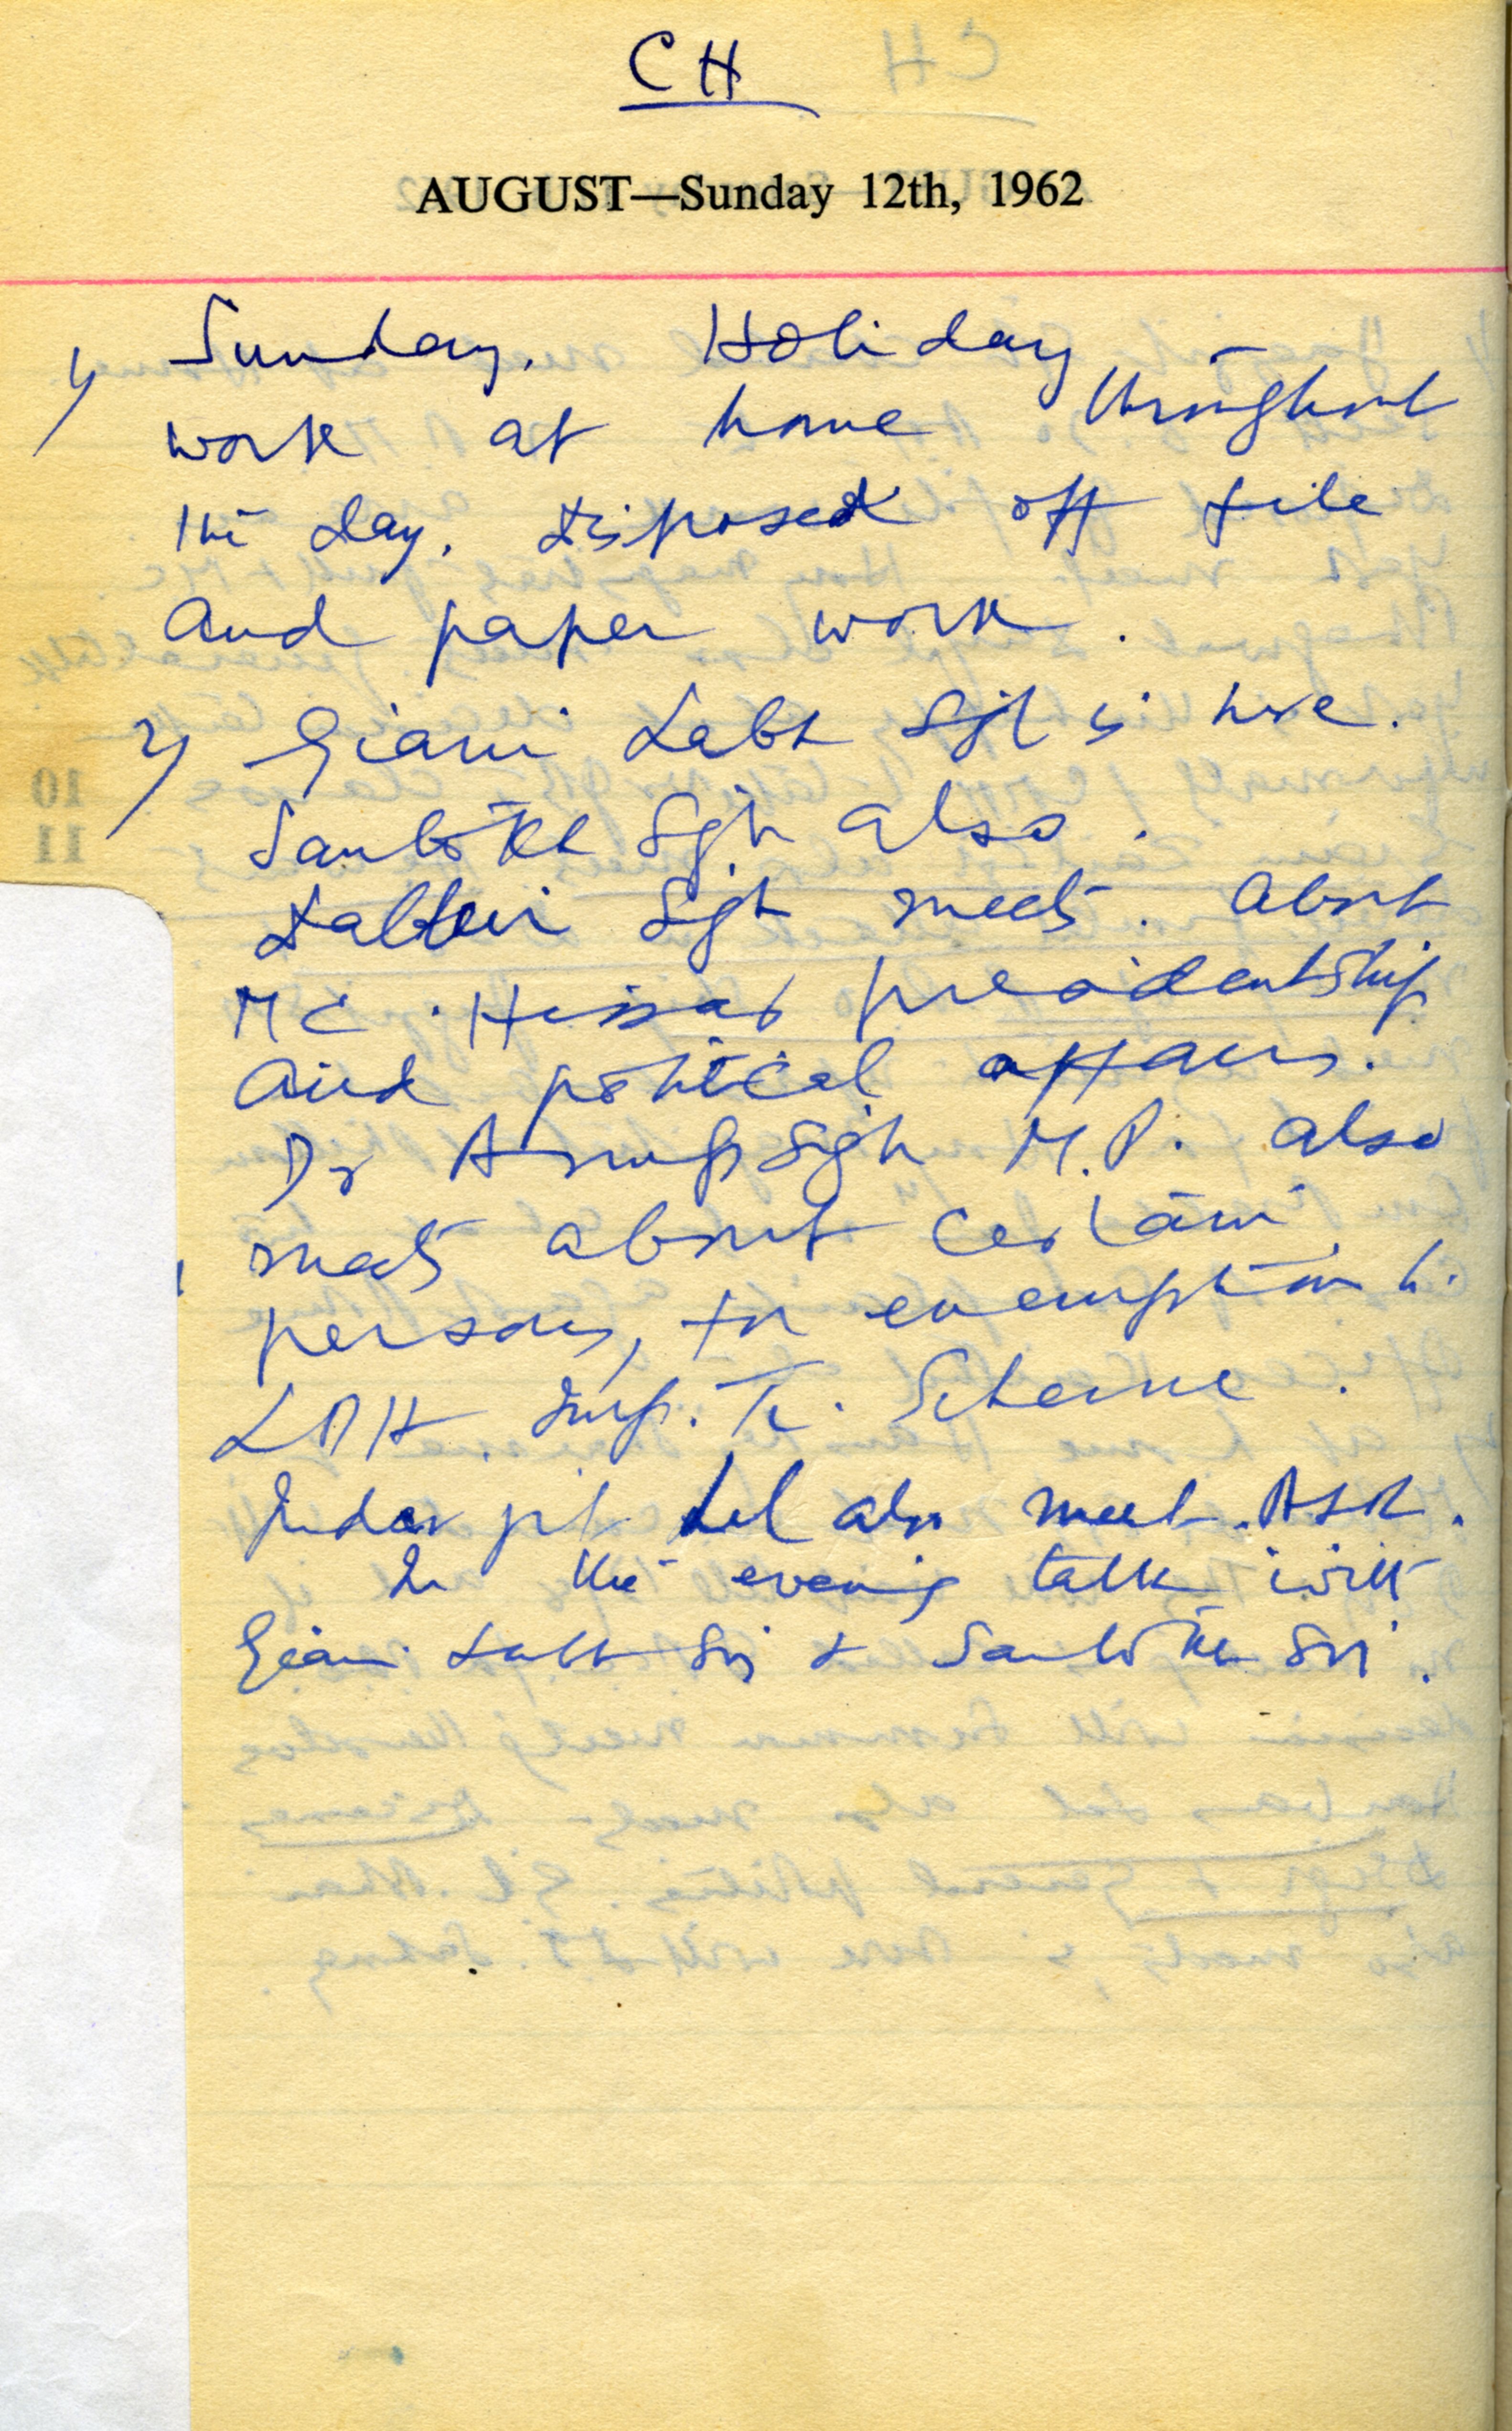 CH
AUGUST—Sunday 12th, 1962
1/ Sunday. Holiday
work at home throughout
the day. disposed off file
and paper work.
2/ Giani Labh Sgh is here.
Santokh Sgh also.
Dalbir Sgh meets. about
MC. Hissar presidentship
and political affairs.
Dr Anup Sgh M.P. also
meets about certain
persons, for exemption
LDH Imp. Tr. Scheme.
Inder jit Lal also meet. ASR.
In the evening talk with
Giani Labh Sgh & Santokh Sgh.
10
11